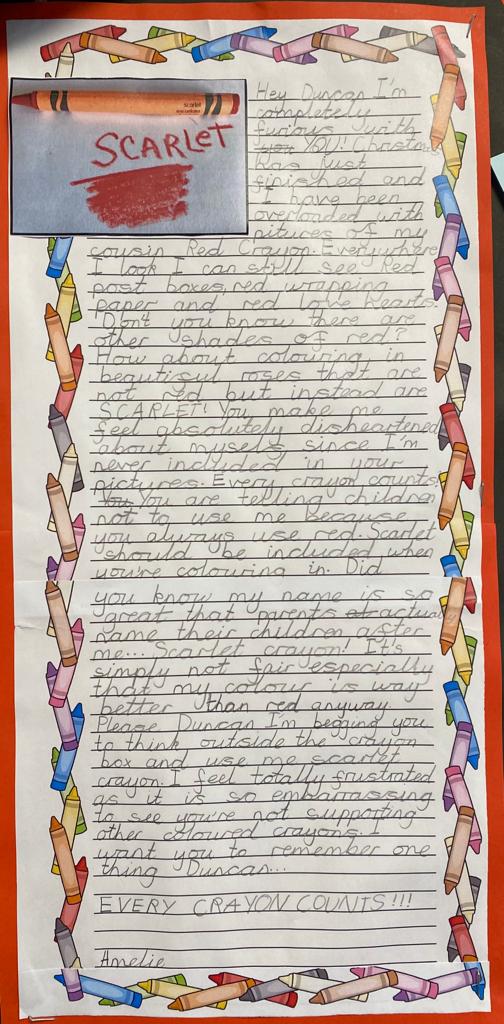 scarlet
SCARLET
Hey Duncan I'm
completely
furious with
you YOU! Christmas
has just
finished and
I have been
overloaded with
pitures of my
cousin Red Crayon. Everywhere
I look I can still see Red
post boxes, red wrapping
paper and red love hearts.
Don't you know there are
other shades of red?
How about colouring in
beautiful roses that are
not red but instead are
SCARLET! You make me
feel absolutely disheartened
about myself since I'm
never included in your
pictures. Every crayon counts!
You You are telling children
not to use me because
you always use red. Scarlet
should be included when
you're colouring in. Did
you know my name is so
great that parents at actually
name their children after
me... Scarlet crayon! It's
simply not fair especially
that my colour is way
better than red anyway.
Please Duncan I'm begging you
to think outside the crayon
box and use me scarlet
crayon. I feel totally frustrated
as it is so embarrassing
to see you're not supporting
other coloured crayons. I
want you to remember one
thing Duncan...
EVERY CRAYON COUNTS!!!
Amelie